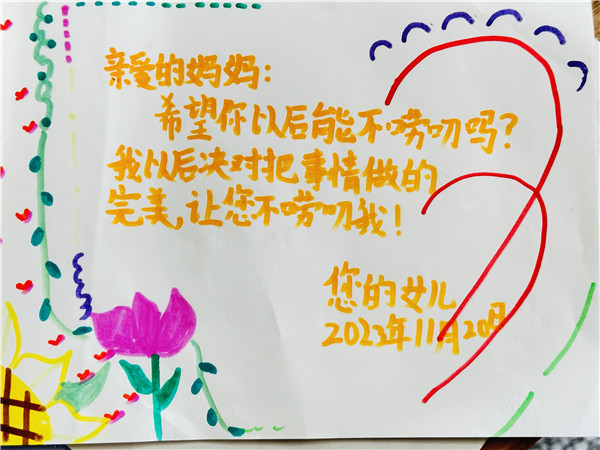 亲爱的妈妈：
希望你以后能不唠叨吗？
我以后决对把事情做的
完美，让您不唠叨我！
您的女儿
2023年11月20日